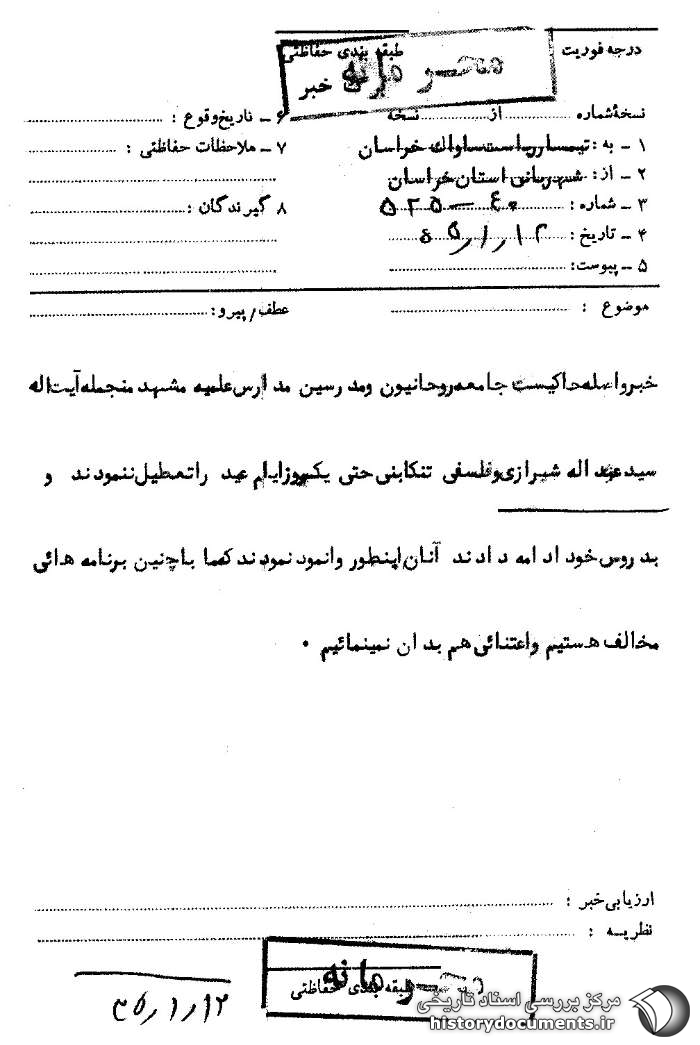 درجه فوریت
طبقه بندی حفاظتی
محرمانه
خبر
نسخهٔ شماره ............ از ............ نسخه
۱ ـ به : تیمسار ریاست ساواک خراسان
۲ ـ از : شهربانی استان خراسان
۳ ـ شماره : ۴۰ — ۵۲۵
۴ ـ تاریخ :
۵ ـ پیوست :
۶ ـ تاریخ وقوع :
۷ ـ ملاحظات حفاظتی :
۸ گیرندگان :
موضوع :
عطف / پیرو :
خبر واصله حاکیست جامعه روحانیون ومدرسین مدارس علمیه مشهد منجمله آیت اله
سید عبد اله شیرازی و فلسفی تنکابنی حتی یکروز ایام عید را تعطیل ننمودند و
بدروس خود ادامه دادند آنان اینطور وانمود نمودند که ما با چنین برنامه هائی
مخالف هستیم واعتنائی هم بدان نمینمائیم .
ارزیابی خبر :
نظریه :
محرمانه
طبقه بندی حفاظتی
مرکز بررسی اسناد تاریخی
historydocuments.ir